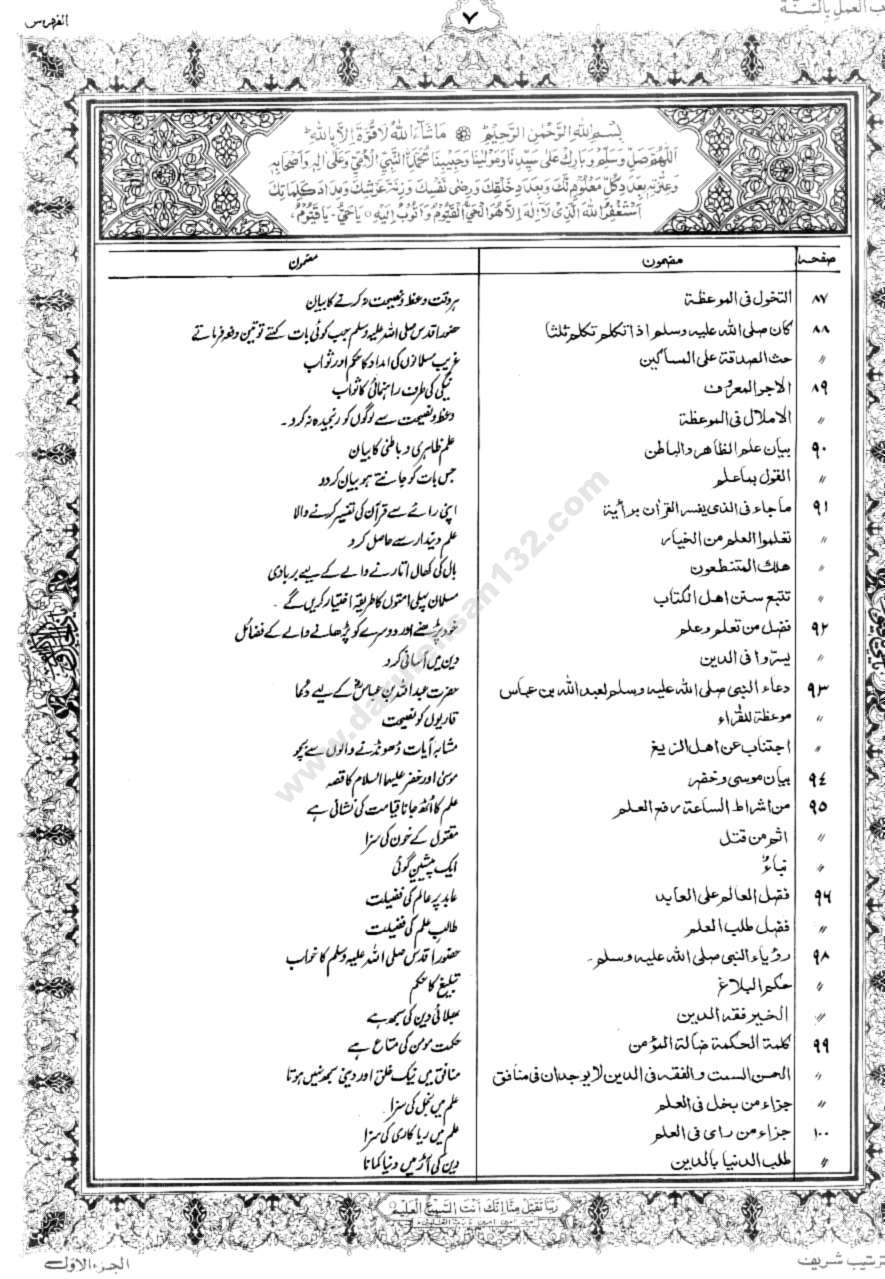 ب العمل بالسنة
٧
الفهرس
بِسْمِ اللهِ الرَّحْمٰنِ الرَّحِيْمِ ۞ مَا شَآءَ اللهُ لَا قُوَّةَ اِلَّا بِاللهِ
اَللّٰهُمَّ صَلِّ وَسَلِّمْ وَبَارِكْ عَلٰى سَيِّدِنَا وَمَوْلٰينَا وَحَبِيْبِنَا مُحَمَّدِنِ النَّبِيِّ الْاُمِّيِّ وَعَلٰى اٰلِهٖ وَاَصْحَابِهٖ
وَعِتْرَتِهٖ بِعَدَدِ كُلِّ مَعْلُوْمٍ لَّكَ وَبِعَدَدِ خَلْقِكَ وَرِضٰى نَفْسِكَ وَزِنَةِ عَرْشِكَ وَمِدَادِ كَلِمَاتِكَ
اَسْتَغْفِرُ اللهَ الَّذِىْ لَآ اِلٰهَ اِلَّا هُوَ الْحَىُّ الْقَيُّوْمُ وَاَتُوْبُ اِلَيْهِ ٥ يَا حَىُّ يَا قَيُّوْمُ
صفحہ مضمون مضمون
٨٧ التخول فى الموعظة ہر وقت وعظ و نصیحت نہ کرنے کا بیان
٨٨ كان صلى الله عليه وسلم اذا تكلم تكلم ثلثا حضور اقدس صلی اللہ علیہ وسلم جب کوئی بات کہتے تو تین دفعہ فرماتے
〃 حث الصدقة على المساكين غریب مسلمانوں کی امداد کا حکم اور ثواب
٨٩ الاجر المعروف نیکی کی طرف راہنمائی کا ثواب
〃 الاملال فى الموعظة وعظ و نصیحت سے لوگوں کو رنجیدہ نہ کرو ۔
٩٠ بيان علم الظاهر والباطن علم ظاہری و باطنی کا بیان
〃 القول بما علم جس بات کو جانتے ہو بیان کر دو
٩١ ماجاء فى الذى يفسر القران برأيه اپنی رائے سے قرآن کی تفسیر کرنے والا
〃 تعلموا العلم من الخيار علم دیندار سے حاصل کرو
〃 هلك المتنطعون بال کی کھال اتارنے والے کے لیے بربادی
〃 تتبع سنن اهل الكتاب مسلمان پہلی امتوں کا طریقہ اختیار کریں گے ۔
٩٢ فضل من تعلم وعلم خود پڑھنے اور دوسرے کو پڑھانے والے کے فضائل
〃 يسروا فى الدين دین میں آسانی کرو
٩٣ دعاء النبى صلى الله عليه وسلم لعبد الله بن عباس حضرت عبداللہ بن عباسؓ کے لیے دُعا
〃 موعظة للقراء قاریوں کو نصیحت
〃 اجتناب عن اهل الزيغ متشابہ آیات ڈھونڈنے والوں سے بچو
٩٤ بيان موسى وخضر موسیٰ اور خضر علیہما السلام کا قصہ
٩٥ من اشراط الساعة رفع العلم علم کا اٹھ جانا قیامت کی نشانی ہے
〃 اثم من قتل مقتول کے خون کی سزا
〃 نباءٌ ایک پیشین گوئی
٩٦ فضل العالم على العابد عابد پر عالم کی فضیلت
〃 فضل طلب العلم طالب علم کی فضیلت
٩٨ رؤياء النبى صلى الله عليه وسلم ۔ حضور اقدس صلی اللہ علیہ وسلم کا خواب
〃 حكم البلاغ تبلیغ کا حکم
〃 الخير فقه الدين بھلائی دین کی سمجھ ہے
٩٩ كلمة الحكمة ضالة المؤمن حکمت مومن کی متاع ہے
〃 الحسن السمت والفقه فى الدين لا يوجدان فى منافق منافق میں نیک خلق اور دینی سمجھ نہیں ہوتا
〃 جزاء من بخل فى العلم علم میں بخل کی سزا
١٠٠ جزاء من راى فى العلم علم میں ریاکاری کی سزا
〃 طلب الدنيا بالدين دین کی آڑ میں دنیا کمانا
www.darulehsan132.com
رَبَّنَا تَقَبَّلْ مِنَّا اِنَّكَ اَنْتَ السَّمِيْعُ الْعَلِيْمُ
ترتیب شریف
الجزء الاول